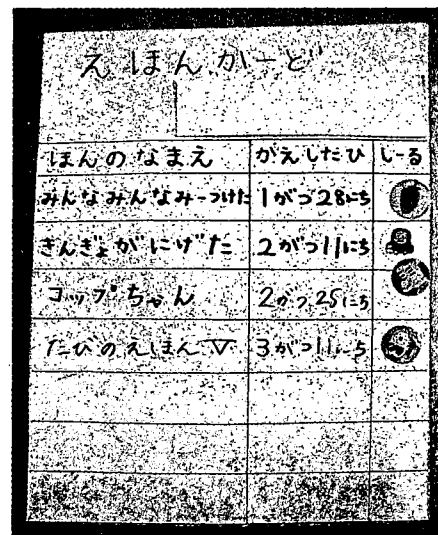 えほんかーど
ほんのなまえ がえしたひ しーる
みんなみんなみーつけた 1がつ28にち
きんぎょがにげた 2がつ11にち
コップちゃん 2がつ25にち
たびのえほんⅤ 3がつ11にち